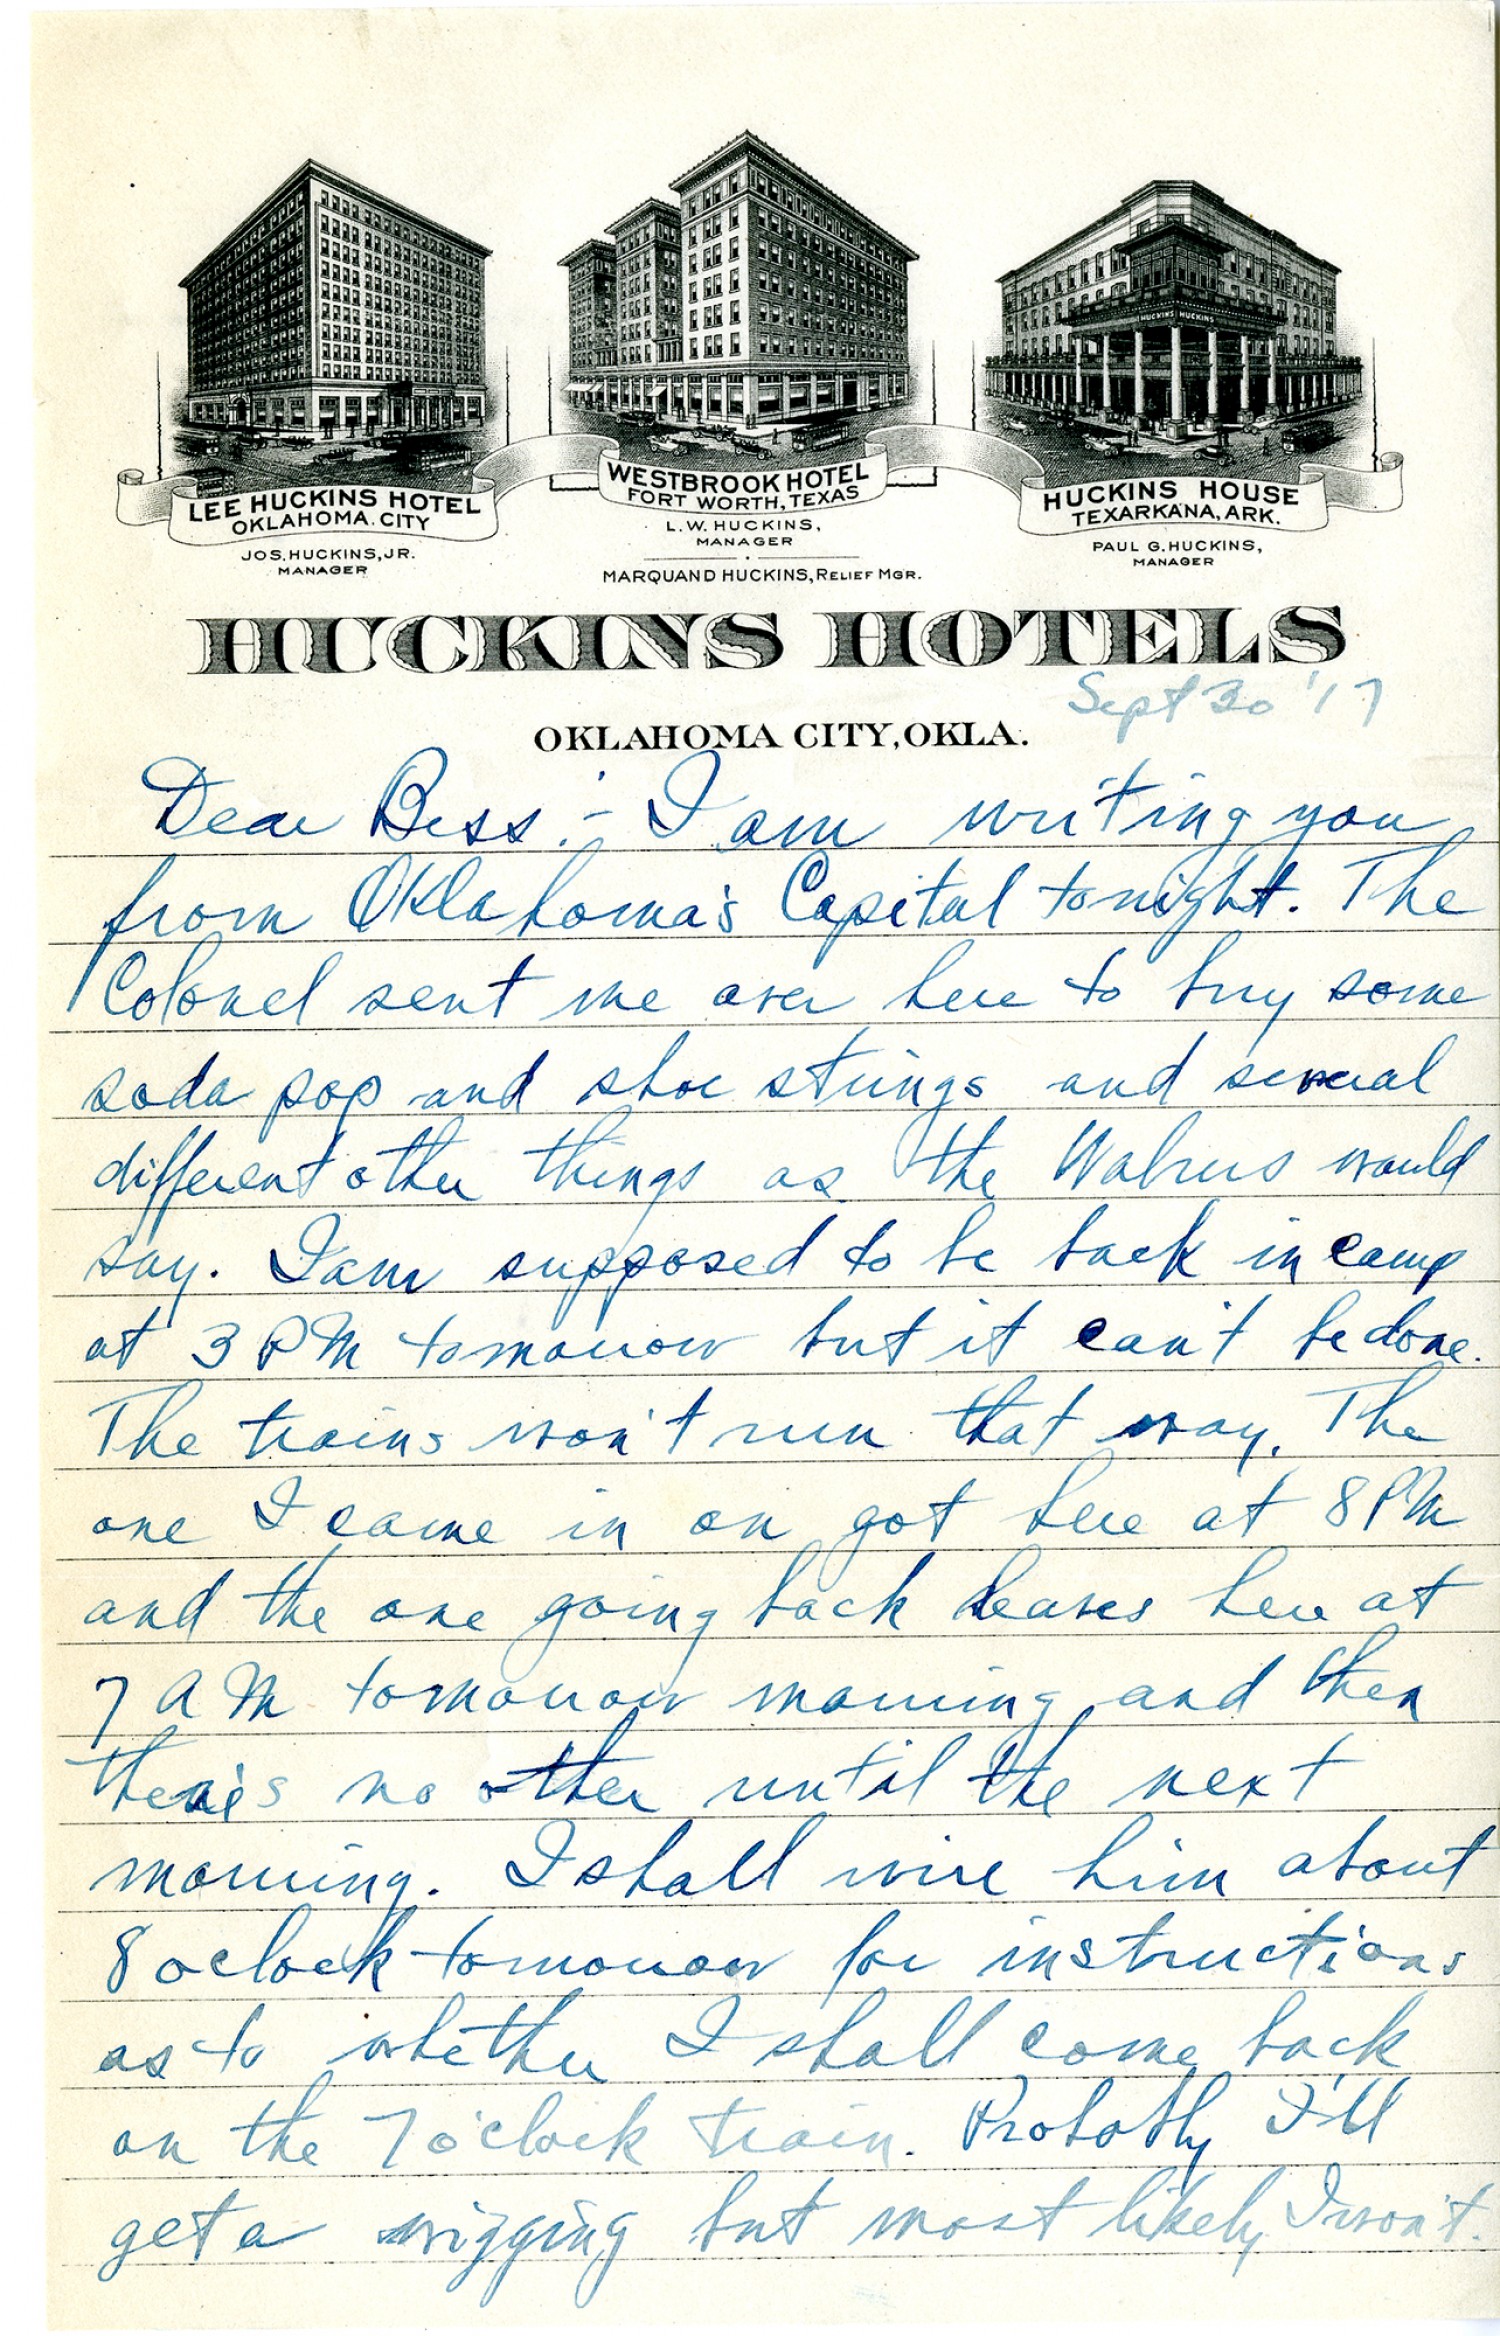 HUCKINS HUCKINS
LEE HUCKINS HOTEL
OKLAHOMA. CITY
JOS. HUCKINS, JR.
MANAGER
WESTBROOK HOTEL
FORT WORTH, TEXAS
L. W. HUCKINS,
MANAGER
MARQUAND HUCKINS, RELIEF MGR.
HUCKINS HOUSE
TEXARKANA, ARK.
PAUL G. HUCKINS,
MANAGER
HUCKINS HOTELS
Sept 30 '17
OKLAHOMA CITY, OKLA.
Dear Bess :- I am writing you
from Oklahoma's Capital tonight. The
Colonel sent me over here to buy some
soda pop and shoe strings and several
different other things as the Walrus would
say. I am supposed to be back in camp
at 3 PM tomorrow but it can't be done.
The trains won't run that way. The
one I came in on got here at 8 PM
and the one going back leaves here at
7 AM tomorrow morning and then
there's no other until the next
morning. I shall wire him about
8 oclock tomorrow for instructions
as to whether I shall come back
on the 7 o'clock train. Probably I'll
get a wigging but most likely I won't.